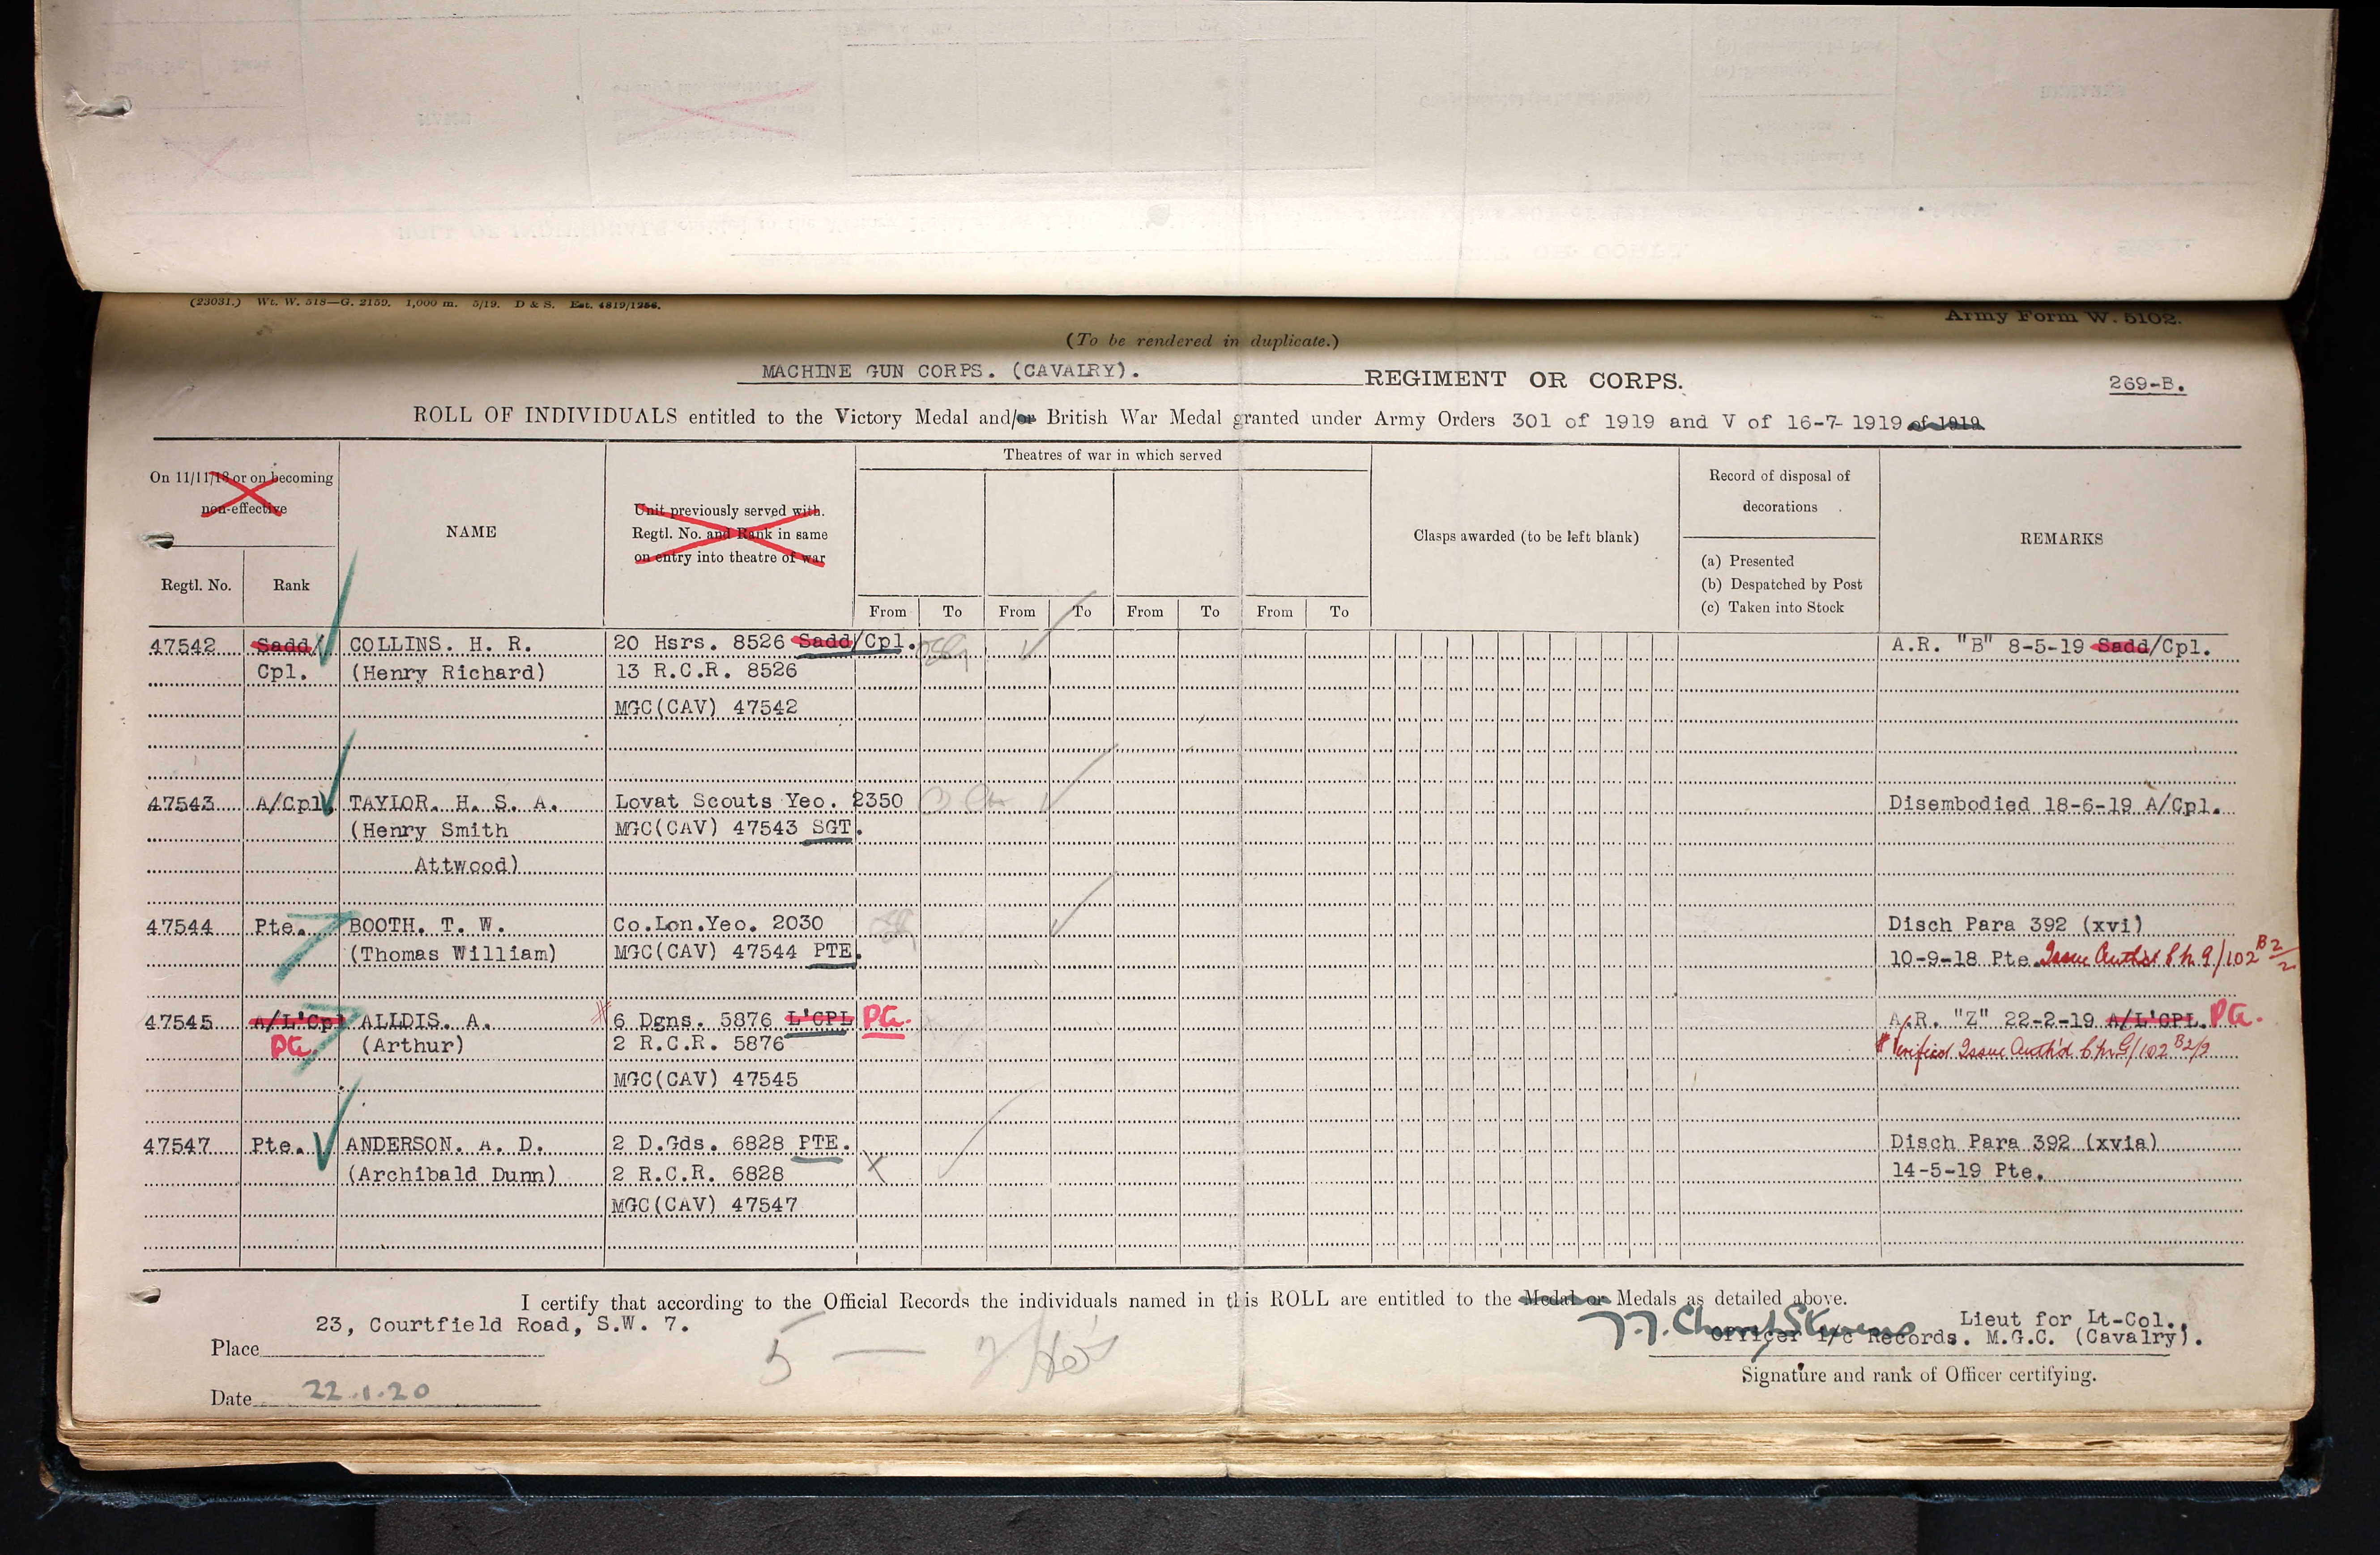 (23031.) Wt. W. 518—G. 2159. 1,000 m. 5/19. D & S. Est. 4819/1256.
Army Form W. 5102.
(To be rendered in duplicate.)
MACHINE GUN CORPS. (CAVALRY). REGIMENT OR CORPS.
269-B.
ROLL OF INDIVIDUALS entitled to the Victory Medal and/or British War Medal granted under Army Orders 301 of 1919 and V of 16-7-1919 of 1919
On 11/11/18 or on becoming
non-effective
Regtl. No. Rank
NAME
Unit previously served with.
Regtl. No. and Rank in same
on entry into theatre of war
Theatres of war in which served
From To From To From To From To
Clasps awarded (to be left blank)
Record of disposal of
decorations
(a) Presented
(b) Despatched by Post
(c) Taken into Stock
REMARKS
47542 Sadd/ COLLINS. H. R. 20 Hsrs. 8526 Sadd/Cpl. A.R. "B" 8-5-19 Sadd/Cpl.
Cpl. (Henry Richard) 13 R.C.R. 8526
MGC(CAV) 47542
47543 A/Cpl. TAYLOR. H. S. A. Lovat Scouts Yeo. 2350 Disembodied 18-6-19 A/Cpl.
(Henry Smith MGC(CAV) 47543 SGT.
Attwood)
47544 Pte. BOOTH. T. W. Co.Lon.Yeo. 2030 Disch Para 392 (xvi)
(Thomas William) MGC(CAV) 47544 PTE. 10-9-18 Pte. Issue Auth'd 9/102 B2/2
47545 A/L'Cpl ALLDIS. A. 6 Dgns. 5876 L'CPL Pte. A.R. "Z" 22-2-19 A/L'CPL. Pte.
Pte. (Arthur) 2 R.C.R. 5876 Verified Issue Auth'd G/102 B2/2
MGC(CAV) 47545
47547 Pte. ANDERSON. A. D. 2 D.Gds. 6828 PTE. Disch Para 392 (xvia)
(Archibald Dunn) 2 R.C.R. 6828 X 14-5-19 Pte.
MGC(CAV) 47547
I certify that according to the Official Records the individuals named in this ROLL are entitled to the Medal or Medals as detailed above.
23, Courtfield Road, S.W. 7.
Place
Lieut for Lt-Col.,
Officer i/c Records. M.G.C. (Cavalry).
Signature and rank of Officer certifying.
Date 22.1.20
5 —